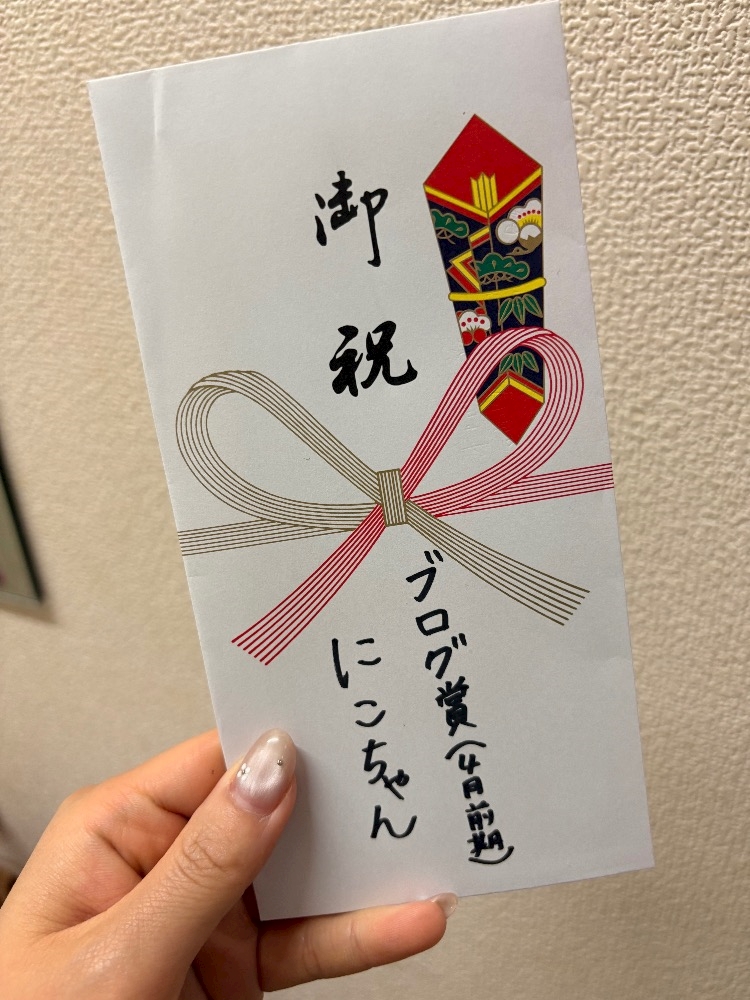 御祝
ブログ賞(4月前期)
にこちゃん